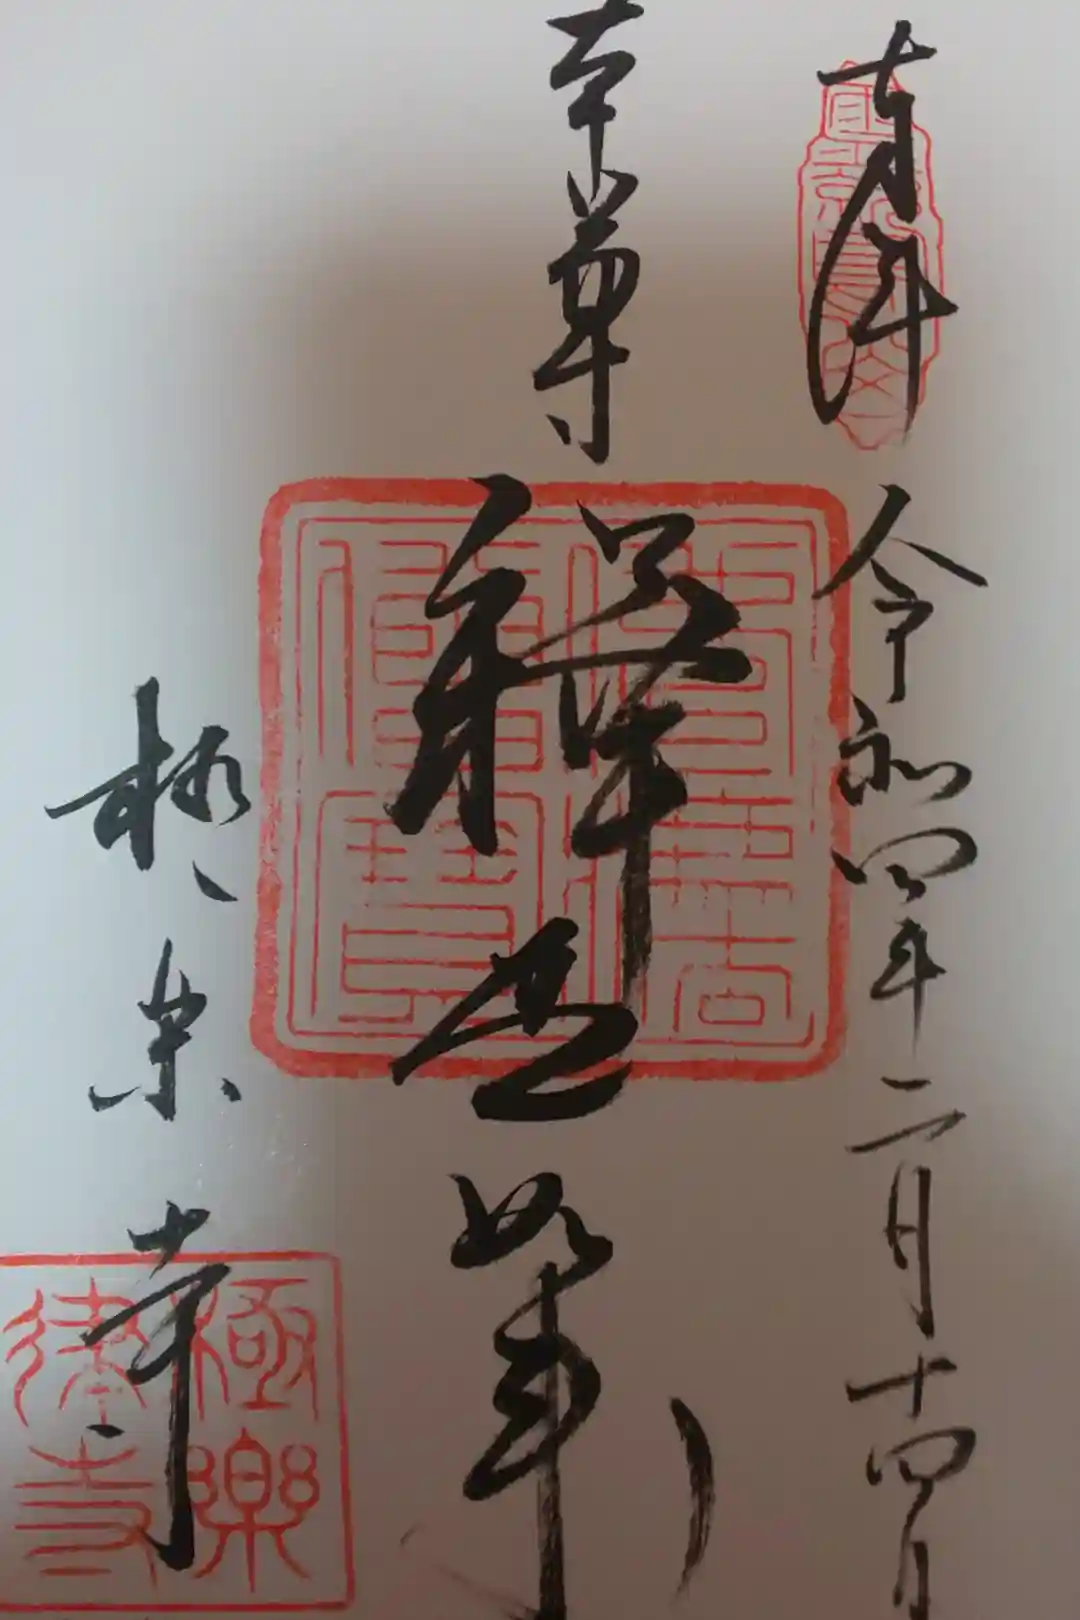 奉拝
令和四年二月十四日
本尊
釋迦如来
極楽寺
極樂
律寺